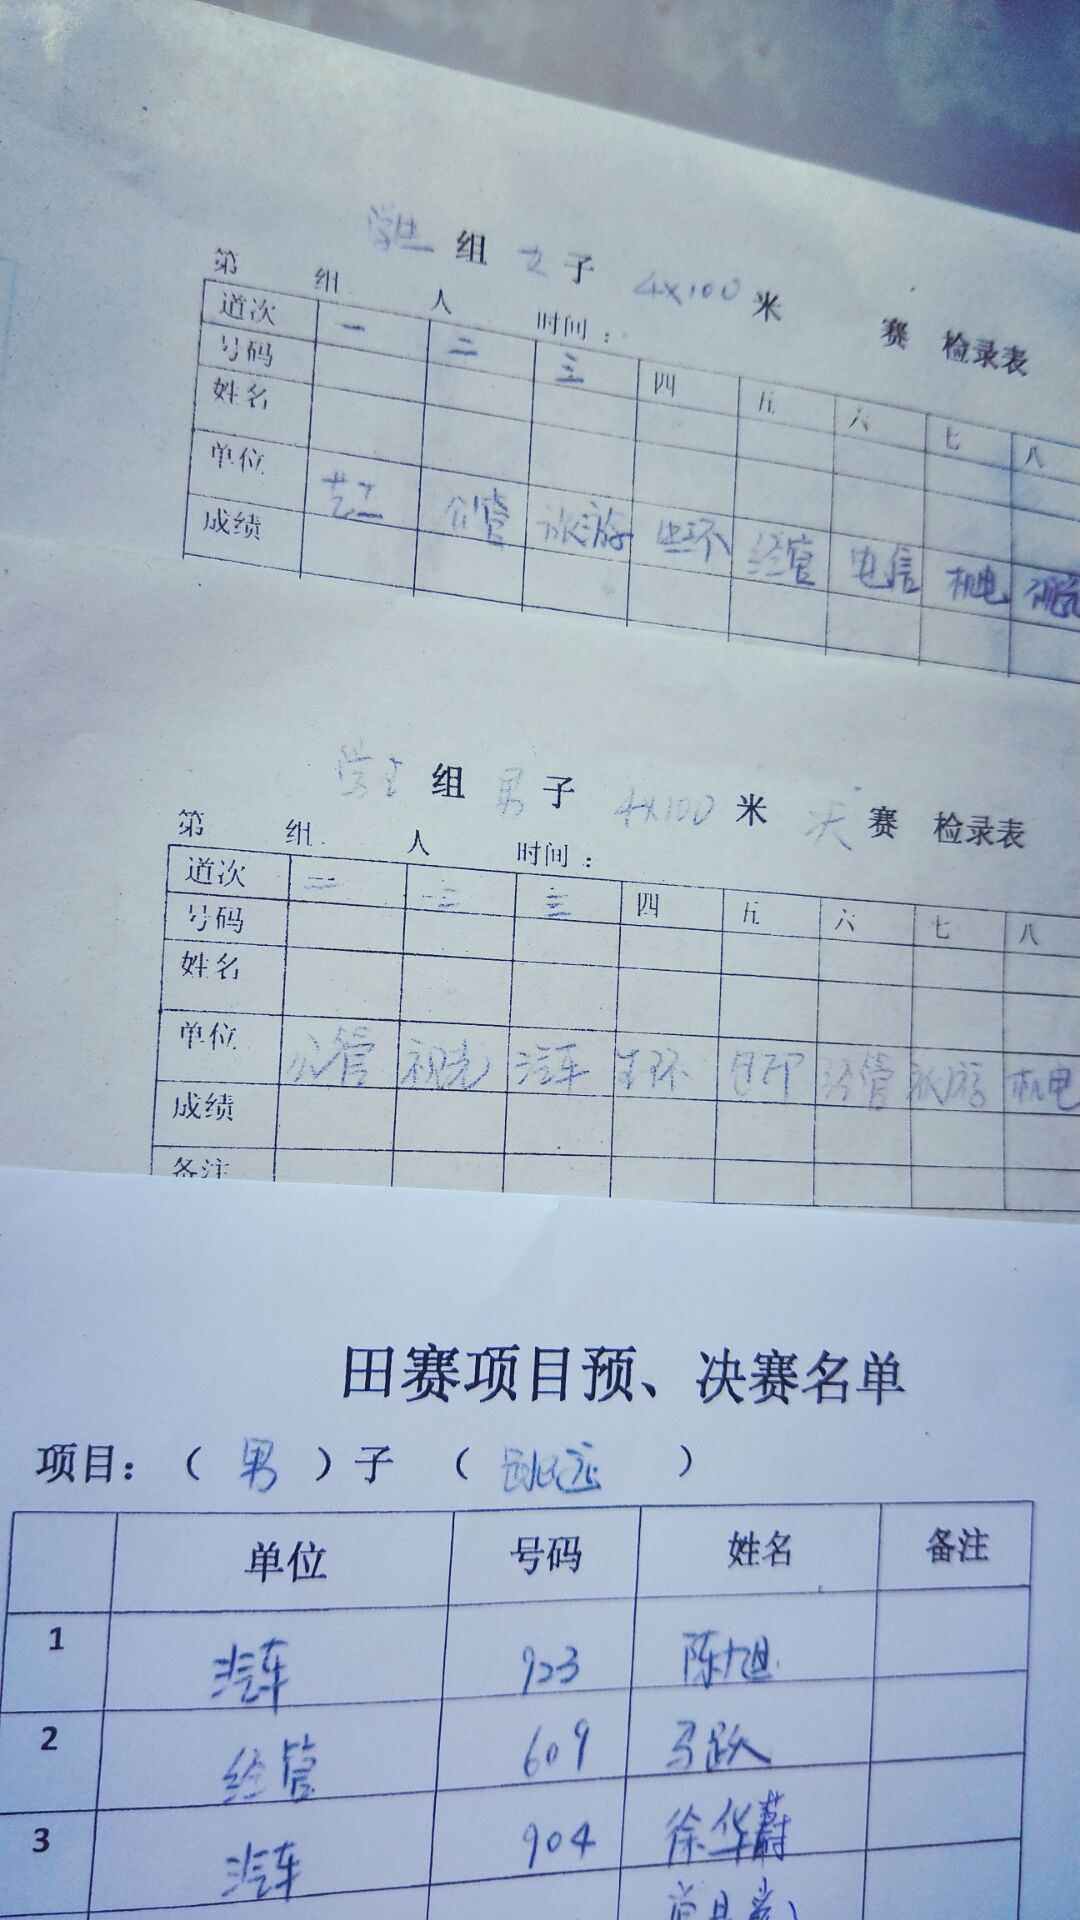 学生 组 女 子 4×100 米 赛 检录表
第 组 人 时间：
道次 一 二 三 四 五 六 七 八
号码
姓名
单位 艺工 公管 旅游 生环 经管 电信 机电 视光
成绩
学生 组 男 子 4×100 米 决 赛 检录表
第 组 人 时间：
道次 一 二 三 四 五 六 七 八
号码
姓名
单位 公管 视光 汽车 生环 包印 经管 旅游 机电
成绩
备注
田赛项目预、决赛名单
项目：（ 男 ）子 （ 跳远 ）
单位 号码 姓名 备注
1 汽车 923 陈旭
2 经管 609 马跃
3 汽车 904 徐华蔚